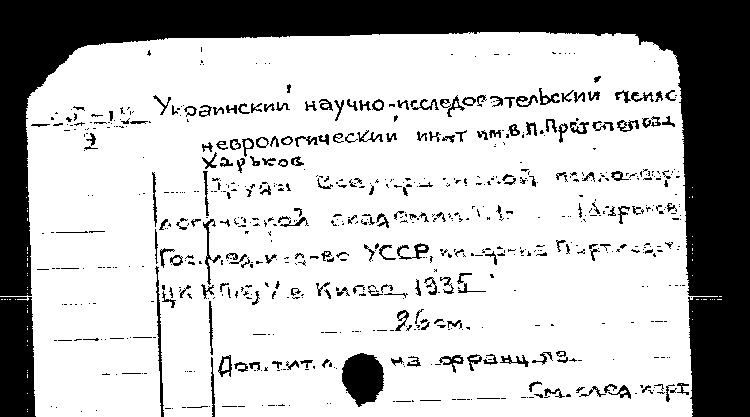 Украинский научно-исследовательский психо
неврологический ин-т им.В.П.Протопопова
Харьков
9
Труды Всеукраинской психоневро-
логической академии.Т.1- [Харьков]
Гос.мед.изд-во УССР, тип. Парт.издат.
ЦК КП/б/У в Киеве, 1935
26 см.
Доп.тит.л. на франц.яз.
См.след.карт.